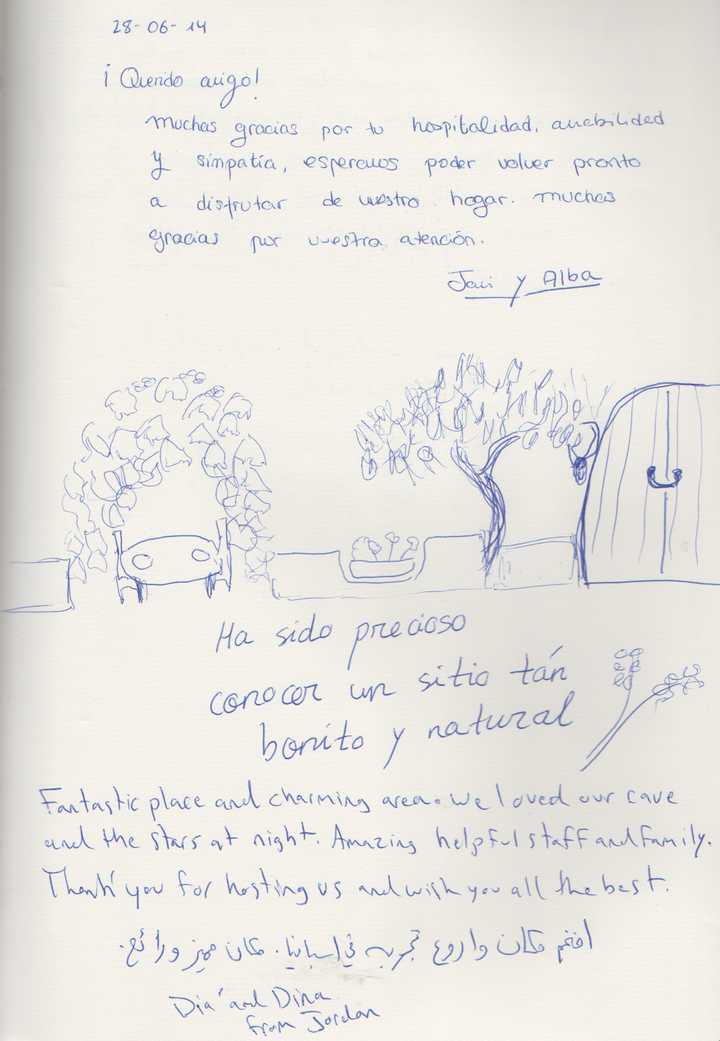 28-06-14
¡Querido amigo!
muchas gracias por tu hospitalidad, amabilidad
y simpatía, esperamos poder volver pronto
a disfrutar de vuestro hogar. muchas
gracias por vuestra atención.
Javi y Alba
Ha sido precioso
conocer un sitio tán
bonito y natural
Fantastic place and charming area. We loved our cave
and the stars at night. Amazing helpful staff and family.
Thank you for hosting us and wish you all the best.
افخم مكان واروع تجربه في اسبانيا. مكان مميز ورائع.
Dia' and Dina
from Jordan